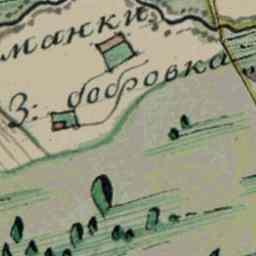 манки
З: бобровка